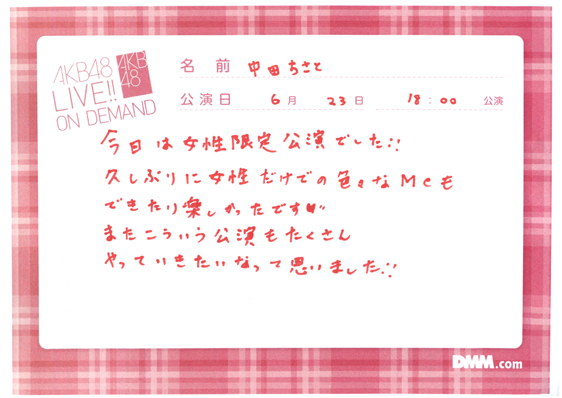 AKB48
LIVE!!
ON DEMAND
AKB
48
名前 中田ちさと
公演日 6月 23日 18:00 公演
今日は女性限定公演でした!!
久しぶりに女性だけでの色々なMCも
できたり楽しかったです♥
またこういう公演もたくさん
やっていきたいなって思いました!!
DMM.com